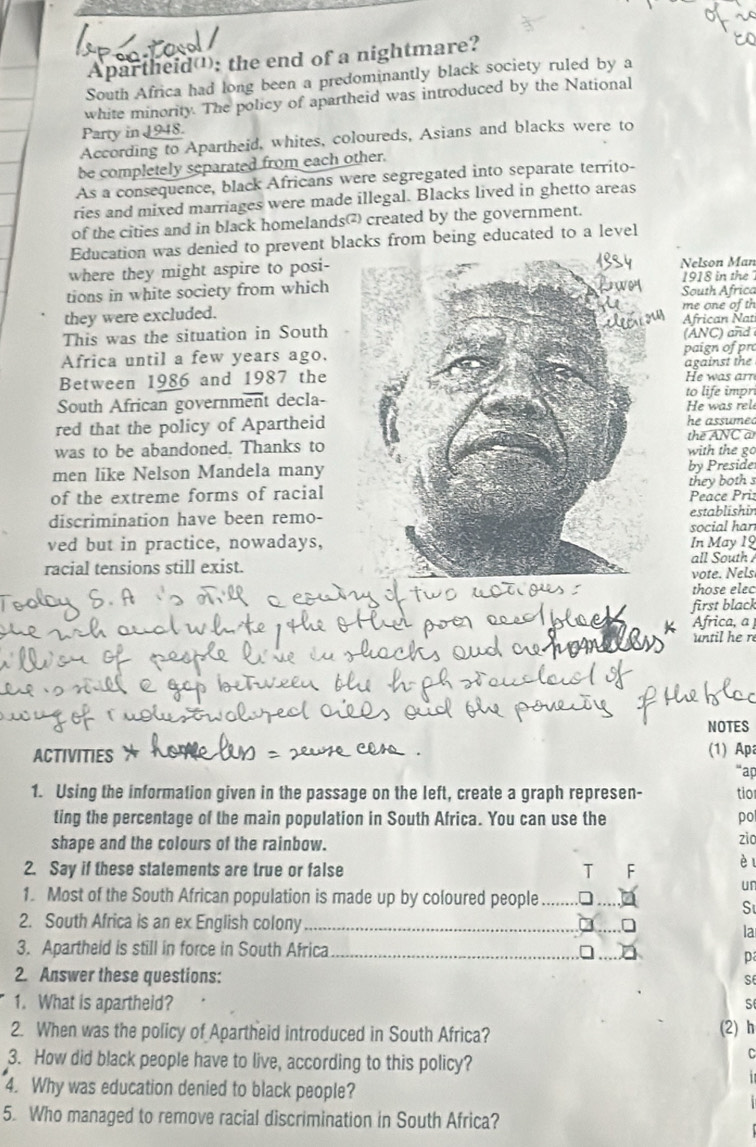 Apartheid(1): the end of a nightmare?
South Africa had long been a predominantly black society ruled by a
white minority. The policy of apartheid was introduced by the National
Party in 1948.
According to Apartheid, whites, coloureds, Asians and blacks were to
be completely separated from each other.
As a consequence, black Africans were segregated into separate territo-
ries and mixed marriages were made illegal. Blacks lived in ghetto areas
of the cities and in black homelands(2) created by the government.
Education was denied to prevent blacks from being educated to a level
where they might aspire to posi-
tions in white society from which
they were excluded.
This was the situation in South
Africa until a few years ago.
Between 1986 and 1987 the
South African government decla-
red that the policy of Apartheid
was to be abandoned. Thanks to
men like Nelson Mandela many
of the extreme forms of racial
discrimination have been remo-
ved but in practice, nowadays,
racial tensions still exist.
Nelson Man
1918 in the
South Africa
me one of th
African Nat
(ANC) and
paign of pro
against the
He was arr
to life impri
He was rele
he assumed
the ANC a
with the go
by Preside
they both s
Peace Priz
establishin
social har
In May 19
all South A
vote. Nels
those elec
first black
Africa, a
until he re
Today S.A is still a country of two nations:
one rich and white, the other poor and black
million of people live in shacks and are homeless *
there is still a gap between the high standard of
living of industrialized cities and the poverty of the blac
ACTIVITIES * homeless = senza casa.
1. Using the information given in the passage on the left, create a graph represen-
ting the percentage of the main population in South Africa. You can use the
shape and the colours of the rainbow.
2. Say if these statements are true or false T F
1. Most of the South African population is made up by coloured people
2. South Africa is an ex English colony
3. Apartheid is still in force in South Africa
2. Answer these questions:
1. What is apartheid?
2. When was the policy of Apartheid introduced in South Africa?
3. How did black people have to live, according to this policy?
4. Why was education denied to black people?
5. Who managed to remove racial discrimination in South Africa?
NOTES
(1) Apa
"ap
tion
pol
zio
è
un
Su
la
pa
se
se
(2) h
c
i
i